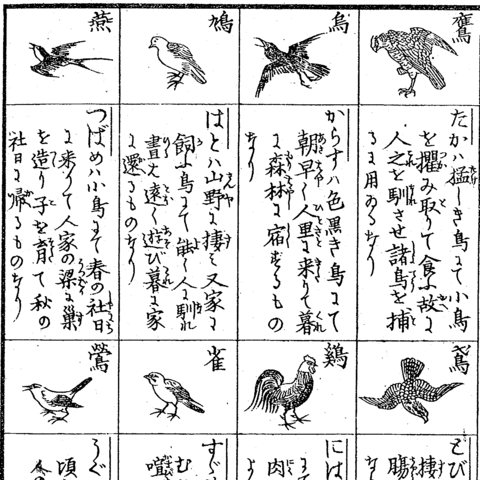 鷹
たかハ猛しき鳥にて小鳥
を攫み取りて食ふ故に
人之を馴させ諸鳥を捕
るに用ゐるなり
烏
からすハ色黒き鳥にて
朝早く人里に来りて暮
に森林に宿するもの
なり
鳩
はとハ山野に棲ミ又家に
飼ふ鳥にて能く人に馴れ
晝ハ遠く遊び暮に家
に還るものなり
燕
つばめハ小鳥にて春の社日
に来りて人家の梁に巣
を造り子を育て秋の
社日に帰るものなり
鳶
とび
棲
腸
鷄
には
肉
雀
すゞ
む
鶯
うぐ
頃